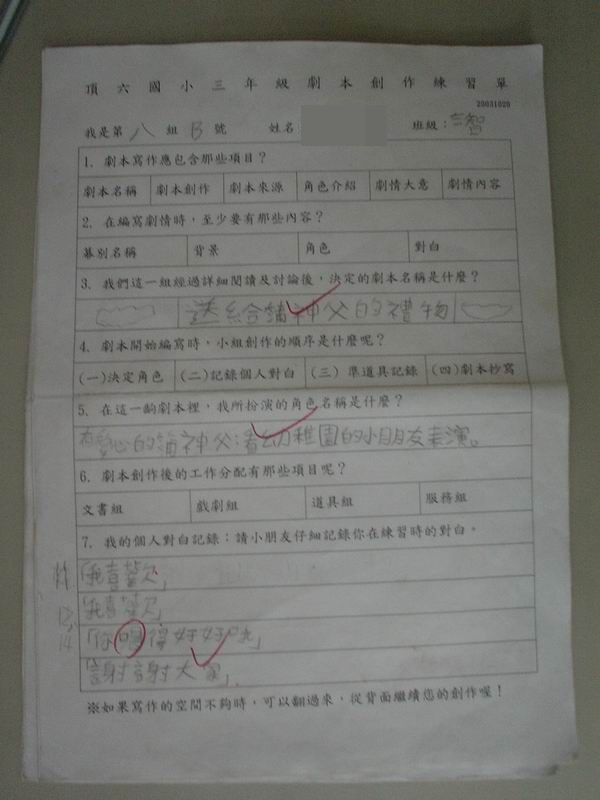 頂六國小三年級劇本創作練習單
20031020
我是第八組B號 姓名 班級：三智
1. 劇本寫作應包含那些項目？
劇本名稱 劇本創作 劇本來源 角色介紹 劇情大意 劇情內容
2. 在編寫劇情時，至少要有那些內容？
幕別名稱 背景 角色 對白
3. 我們這一組經過詳細閱讀及討論後，決定的劇本名稱是什麼？
送給蒲神父的禮物
4. 劇本開始編寫時，小組創作的順序是什麼呢？
(一)決定角色 (二)記錄個人對白 (三) 準道具記錄 (四)劇本抄寫
5. 在這一齣劇本裡，我所扮演的角色名稱是什麼？
有愛心的蒲神父：看幼稚園的小朋友表演。
6. 劇本創作後的工作分配有那些項目呢？
文書組 戲劇組 道具組 服務組
7. 我的個人對白記錄：請小朋友仔細記錄你在練習時的對白。
「我喜歡」
「我喜歡」
12
「你唱得好好听」
14
「謝謝大家」
※如果寫作的空間不夠時，可以翻過來，從背面繼續您的創作喔！